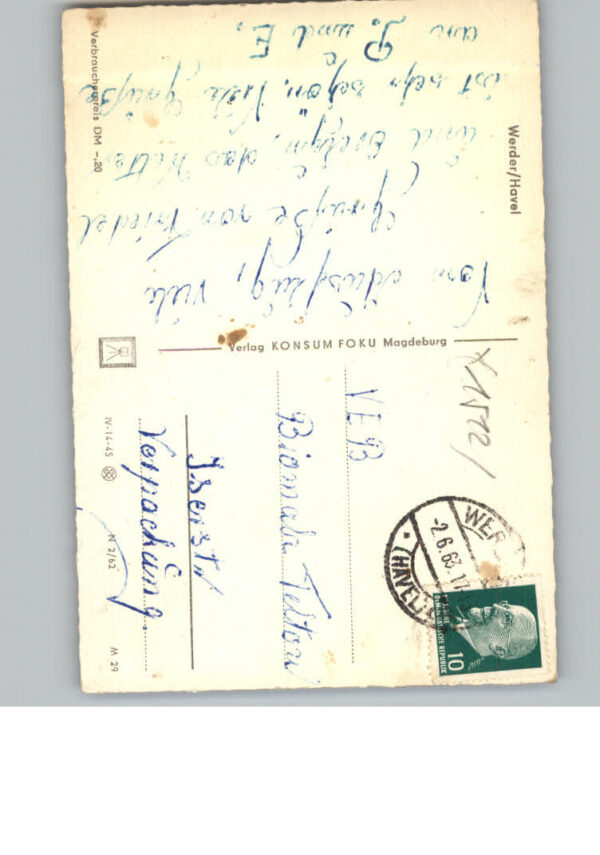 Werder/Havel
Vom Ausflug, viele
Grüße von Friedel
und
das Wetter
ist sehr schön. Viele Grüße
an P. und E.
Verbraucherpreis DM -,20
Verlag KONSUM FOKU Magdeburg
X1522/
WER
-2.6.63.17
(HAVEL)
DEUTSCHE
REPUBLIK
10
VEB
Biomalz Teltow
Iserstr
Verpackung.
IV-14-45
N 2/62
M 29